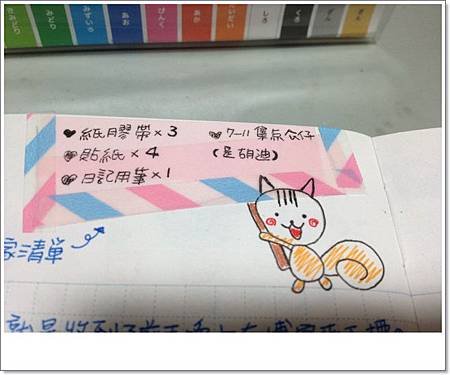 みどり みずいろ あお ぴんく あか だいだい しろ くろ きん ぎん
♥紙膠帶×3
貼紙×4
日記用筆×1
7-11集点公仔
(是胡迪)
家清單